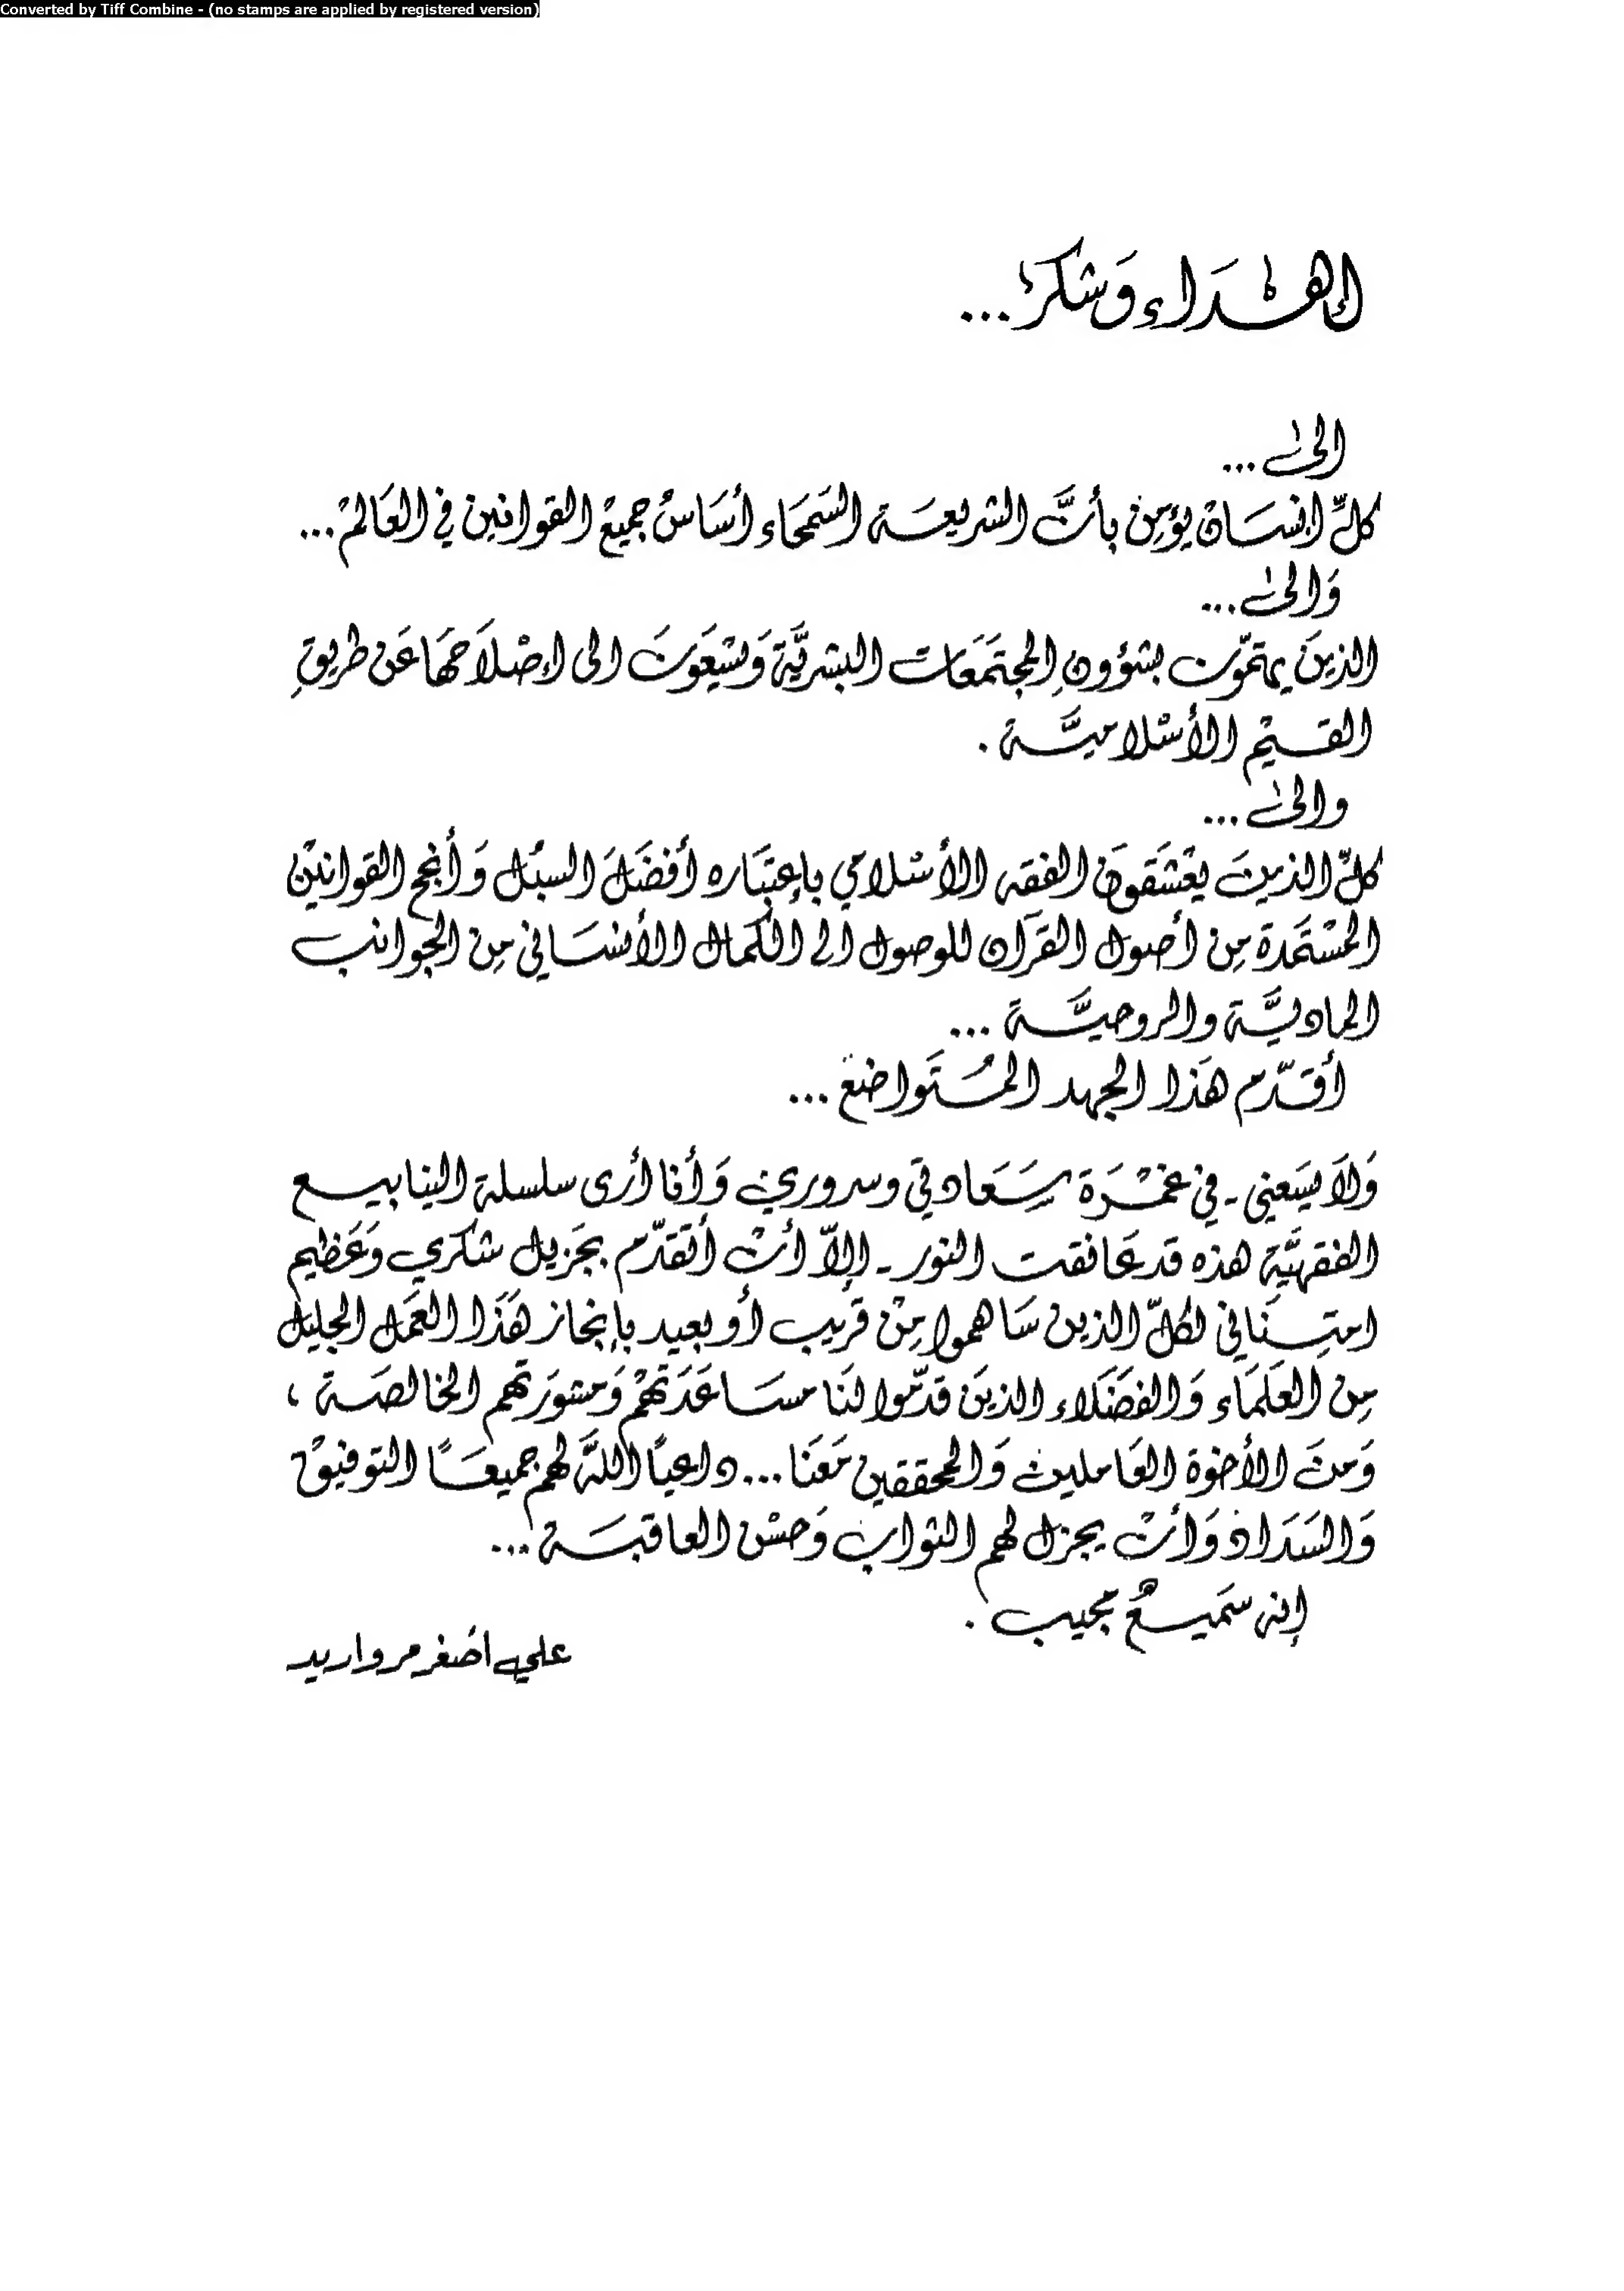 Converted by Tiff Combine - (no stamps are applied by registered version)
إهداء وشكر...
الى...
كلّ انسان يؤمن بأنّ الشريعة السمحاء أساس جميع القوانين في العالم...
والى...
الذين يهتمّون بشؤون المجتمعات البشريّة ويسعون الى إصلاحها عن طريق
القيم الأسلاميّة.
والى...
كلّ الذين يعشقون الفقه الأسلامي بإعتباره أفضل السبل وأنجح القوانين
المستمدة من أصول القرآن للوصول الى الكمال الأنساني من الجوانب
الماديّة والروحيّة...
أقدّم هذا الجهد المتواضع...
ولا يسعني - في غمرة سعادتي وسروري وأنا أرى سلسلة الينابيع
الفقهيّة هذه قد عانقت النور - إلاّ أن أتقدّم بجزيل شكري وعظيم
امتناني لكلّ الذين ساهموا من قريب أو بعيد بإنجاز هذا العمل الجليل
من العلماء والفضلاء الذين قدّموا لنا مساعدتهم ومشورتهم الخالصة،
ومن الأخوة العاملين والمحققين معنا... داعياً اللّه لهم جميعاً التوفيق
والسداد وأن يجزل لهم الثواب وحسن العاقبة...
إنه سميع مجيب.
علي اصغر مرواريد